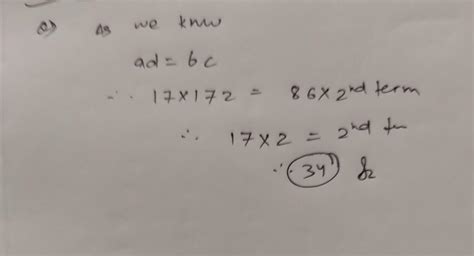 As we know
ad = bc
∴ 17 × 172 = 86 × 2nd term
∴ 17 × 2 = 2nd
∴ 34